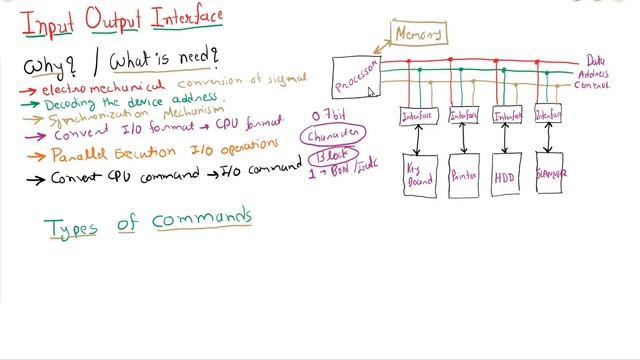 Input Output Interface
Why? / What is need?
→ electromechanical conversion of signal
→ Decoding the device address.
→ Synchronization Mechanism
→ Convert I/O format → CPU format
→ Parallel Execution I/O operations
→ Convert CPU command → I/O command
0 7bit
Character
Block
Types of commands
Memory
Processor
Data
Address
Control
Interface
Interface
Interface
Interface
Key Board
Printer
HDD
SCANNER